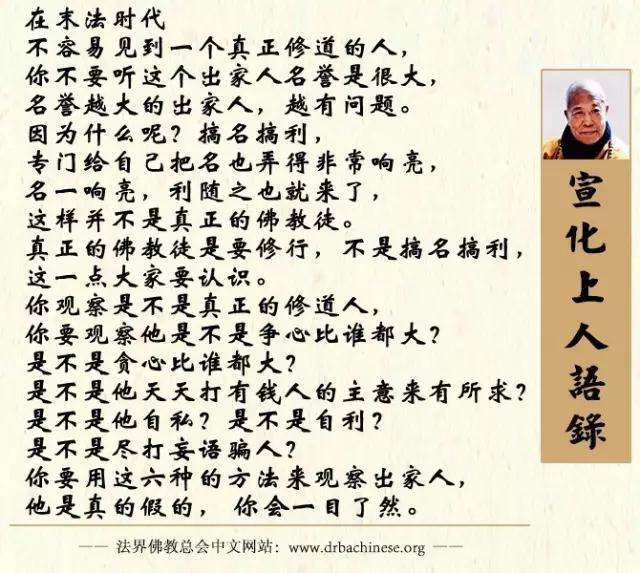 在末法时代
不容易见到一个真正修道的人，
你不要听这个出家人名誉是很大，
名誉越大的出家人，越有问题。
因为什么呢？搞名搞利，
专门给自己把名也弄得非常响亮，
名一响亮，利随之也就来了，
这样并不是真正的佛教徒。
真正的佛教徒是要修行，不是搞名搞利，
这一点大家要认识。
你观察是不是真正的修道人，
你要观察他是不是争心比谁都大？
是不是贪心比谁都大？
是不是他天天打有钱人的主意来有所求？
是不是他自私？是不是自利？
是不是尽打妄语骗人？
你要用这六种的方法来观察出家人，
他是真的假的，你会一目了然。
宣化上人語錄
—— 法界佛教总会中文网站：www.drbachinese.org ——